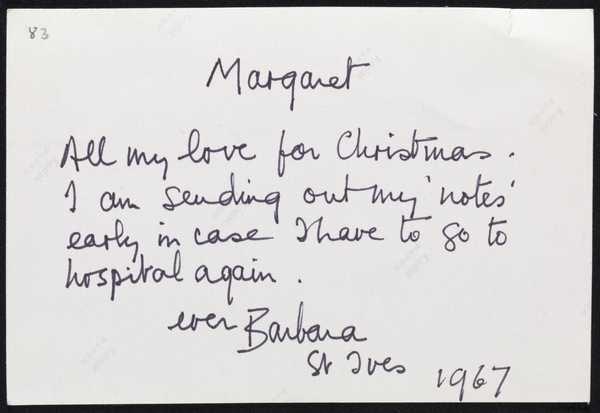 83
Margaret
All my love for Christmas.
I am sending out my 'notes'
early in case I have to go to
hospital again.
ever Barbara
St Ives 1967